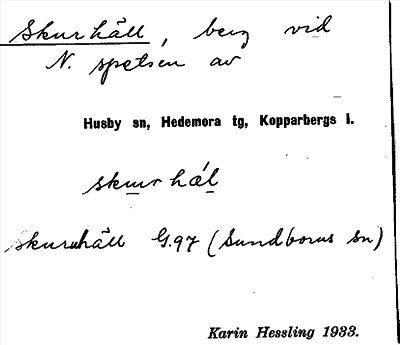 Skurhäll, berg vid
N. spetsen av
Husby sn, Hedemora tg, Kopparbergs l.
skur hæ̀l
skuruhäll G.97 (Sundborns sn)
Karin Hessling 1933.